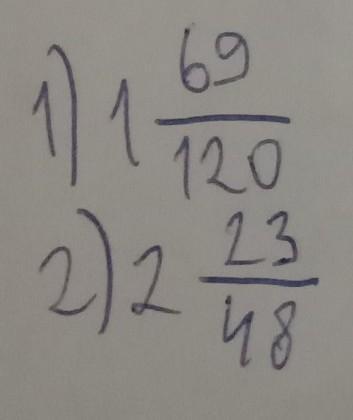 1) 1 69/120
2) 2 23/48